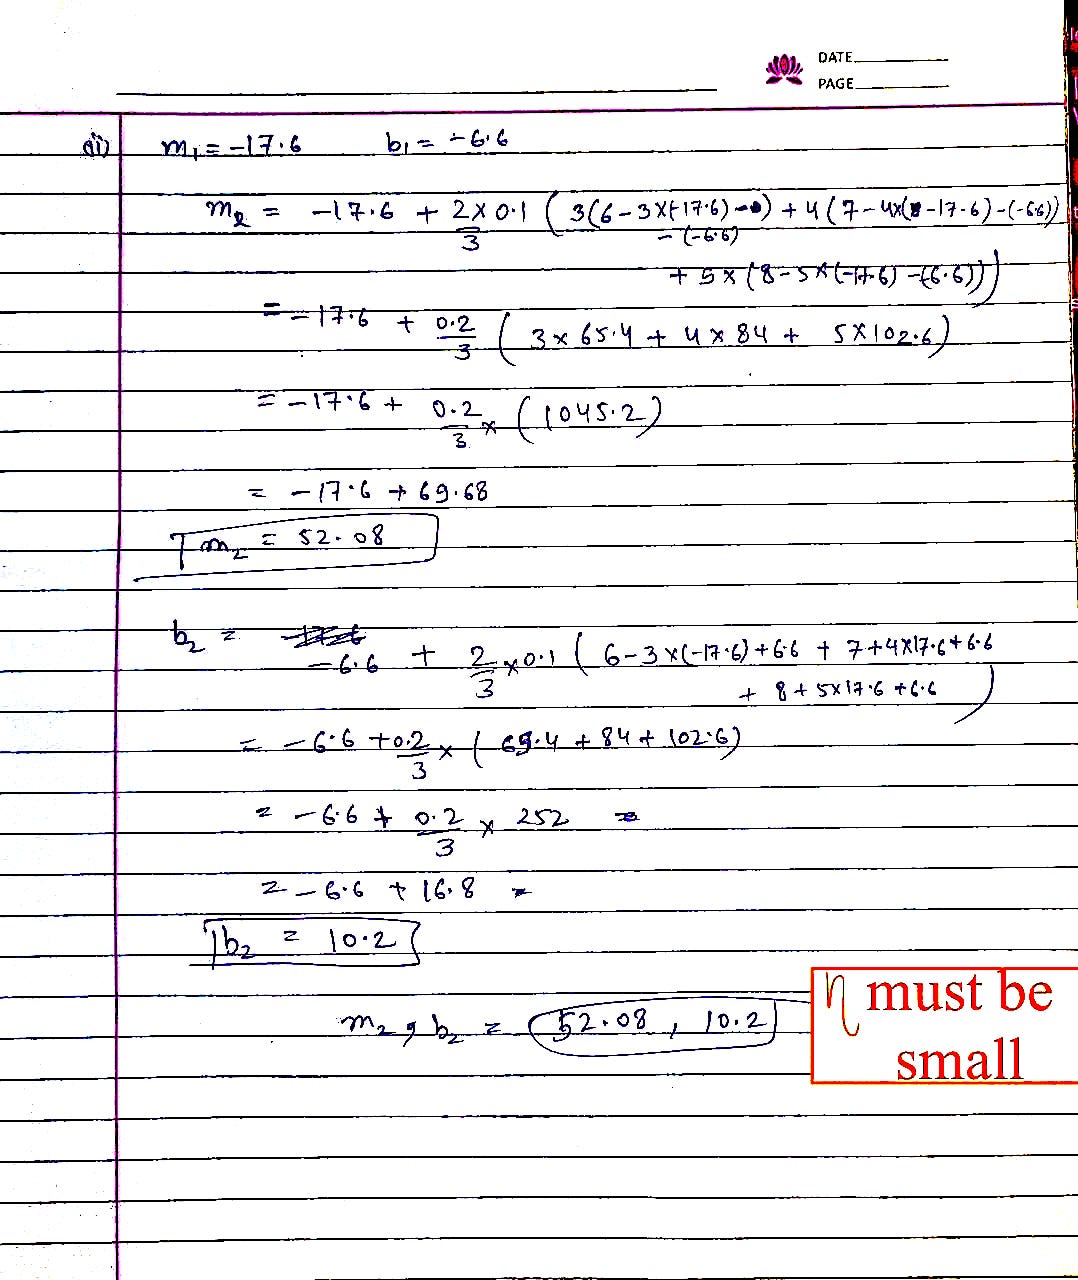 DATE
PAGE
ii) m₁ = -17.6 b₁ = -6.6
m₂ = -17.6 + 2/3 × 0.1 ( 3(6 - 3×(-17.6) - (-6.6)) + 4(7 - 4×(-17.6) - (-6.6))
+ 5 × (8 - 5×(-17.6) - (-6.6)))
= -17.6 + 0.2/3 ( 3 × 65.4 + 4 × 84 + 5 × 102.6)
= -17.6 + 0.2/3 × (1045.2)
= -17.6 + 69.68
m₂ = 52.08
b₂ = -6.6 + 2/3 × 0.1 ( 6 - 3×(-17.6) + 6.6 + 7 + 4×17.6 + 6.6
+ 8 + 5×17.6 + 6.6 )
= -6.6 + 0.2/3 × ( 69.4 + 84 + 102.6)
= -6.6 + 0.2/3 × 252 =
= -6.6 + 16.8 =
b₂ = 10.2
m₂, b₂ = 52.08, 10.2
η must be
small